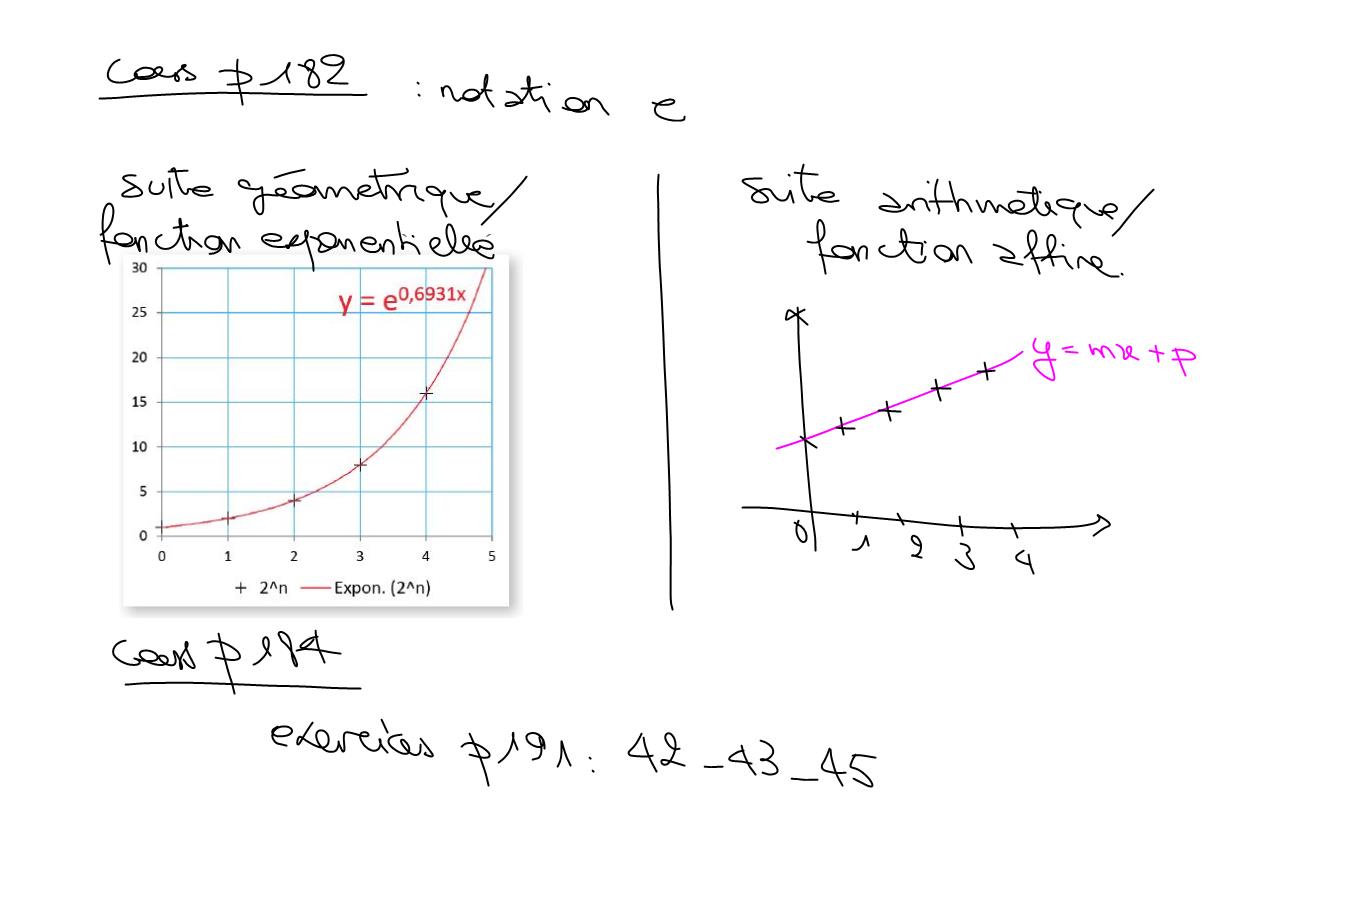 cours p 182 : notation e
suite géométrique/
fonction exponentielle
30
25
20
15
10
5
0
y = e^0,6931x
0 1 2 3 4 5
+ 2^n — Expon. (2^n)
suite arithmétique/
fonction affine.
y = mx + p
0 1 2 3 4
cours p 184
exercices p 191 : 42 _ 43 _ 45